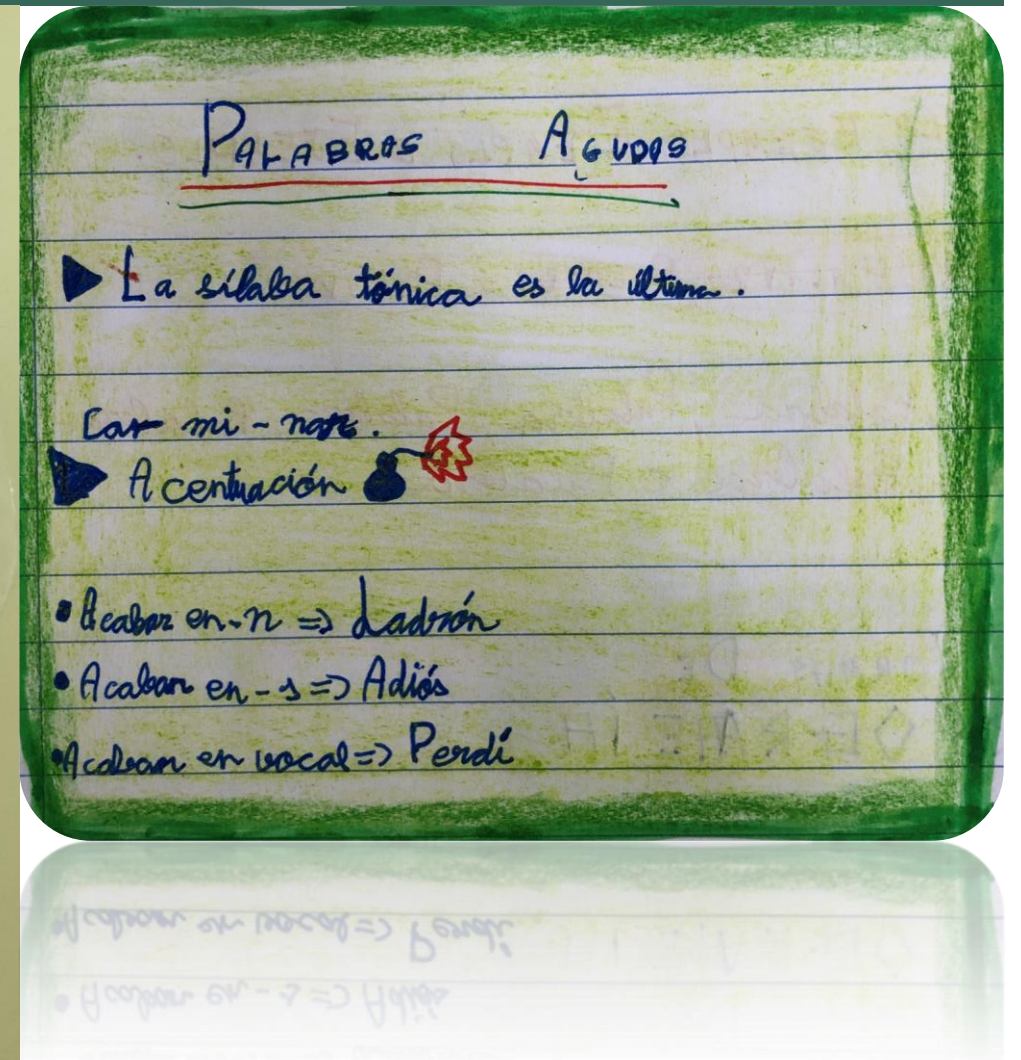 PALABRAS AGUDAS
La sílaba tónica es la última.
Car mi - nar.
Acentuación
• Acaban en -n => Ladrón
• Acaban en -s => Adiós
• Acaban en vocal => Perdí